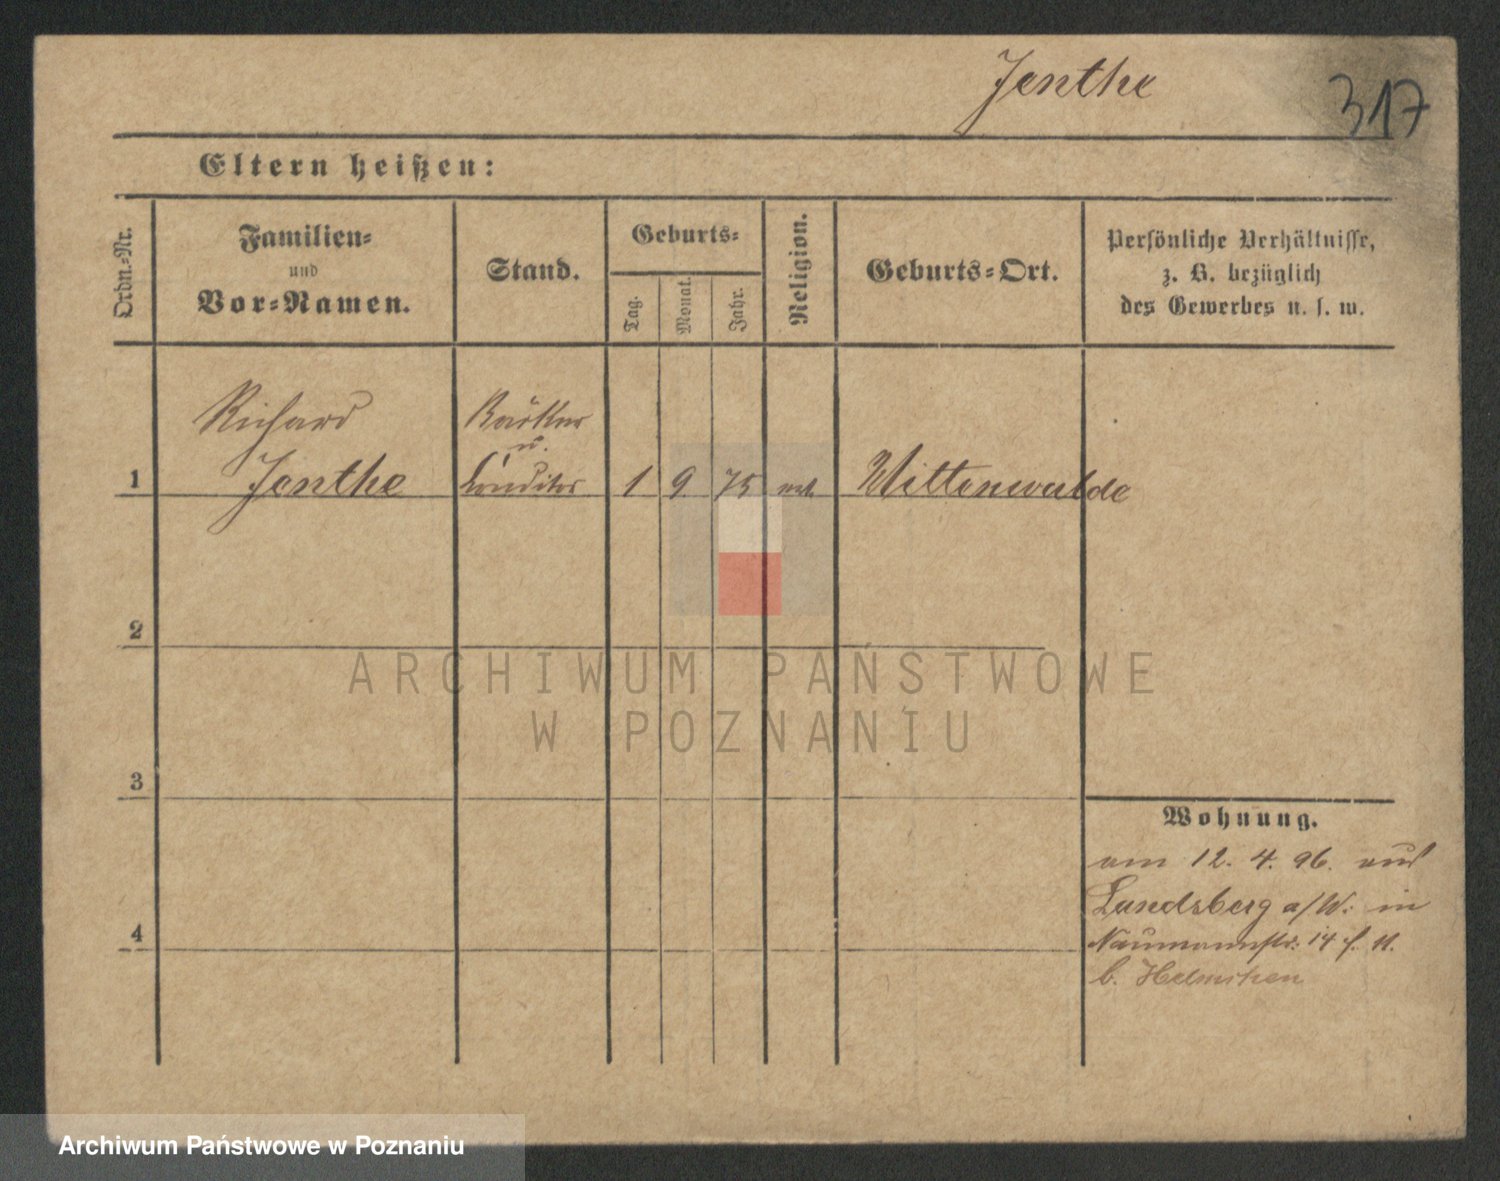 Jenthe
317
Eltern heißen:
Ordn.-Nr.
Familien-
und
Vor-Namen.
Stand.
Geburts-
Tag.
Monat.
Jahr.
Religion.
Geburts-Ort.
Persönliche Verhältnisse,
z. B. bezüglich
des Gewerbes u. s. w.
Richard
Bäcker
u.
1 Jenthe Conditor 1 9 75 Mittenwalde
2
3
4
Wohnung.
am 12. 4. 96. aus
Landsberg a/W. in
Naumannstr. 14
b.
ARCHIWUM PAŃSTWOWE
W POZNANIU
Archiwum Państwowe w Poznaniu